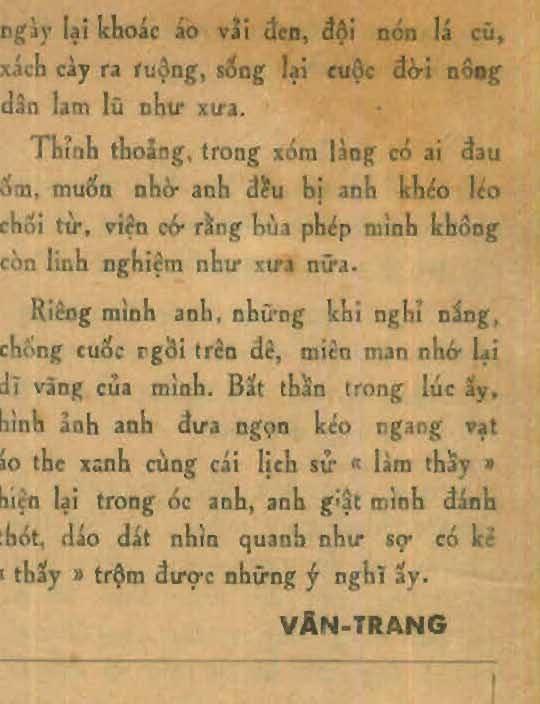 ngày lại khoác áo vải đen, đội nón lá cũ,
xách cày ra ruộng, sống lại cuộc đời nông
dân lam lũ như xưa.
Thỉnh thoảng, trong xóm làng có ai đau
ốm, muốn nhờ anh đều bị anh khéo léo
chối từ, viện cớ rằng bùa phép mình không
còn linh nghiệm như xưa nữa.
Riêng mình anh, những khi nghỉ nắng,
chống cuốc ngồi trên đê, miên man nhớ lại
dĩ vãng của mình. Bất thần trong lúc ấy,
hình ảnh anh đưa ngọn kéo ngang vạt
áo the xanh cùng cái lịch sử « làm thầy »
hiện lại trong óc anh, anh giật mình đánh
thót, dáo dát nhìn quanh như sợ có kẻ
« thấy » trộm được những ý nghĩ ấy.
VÂN-TRANG